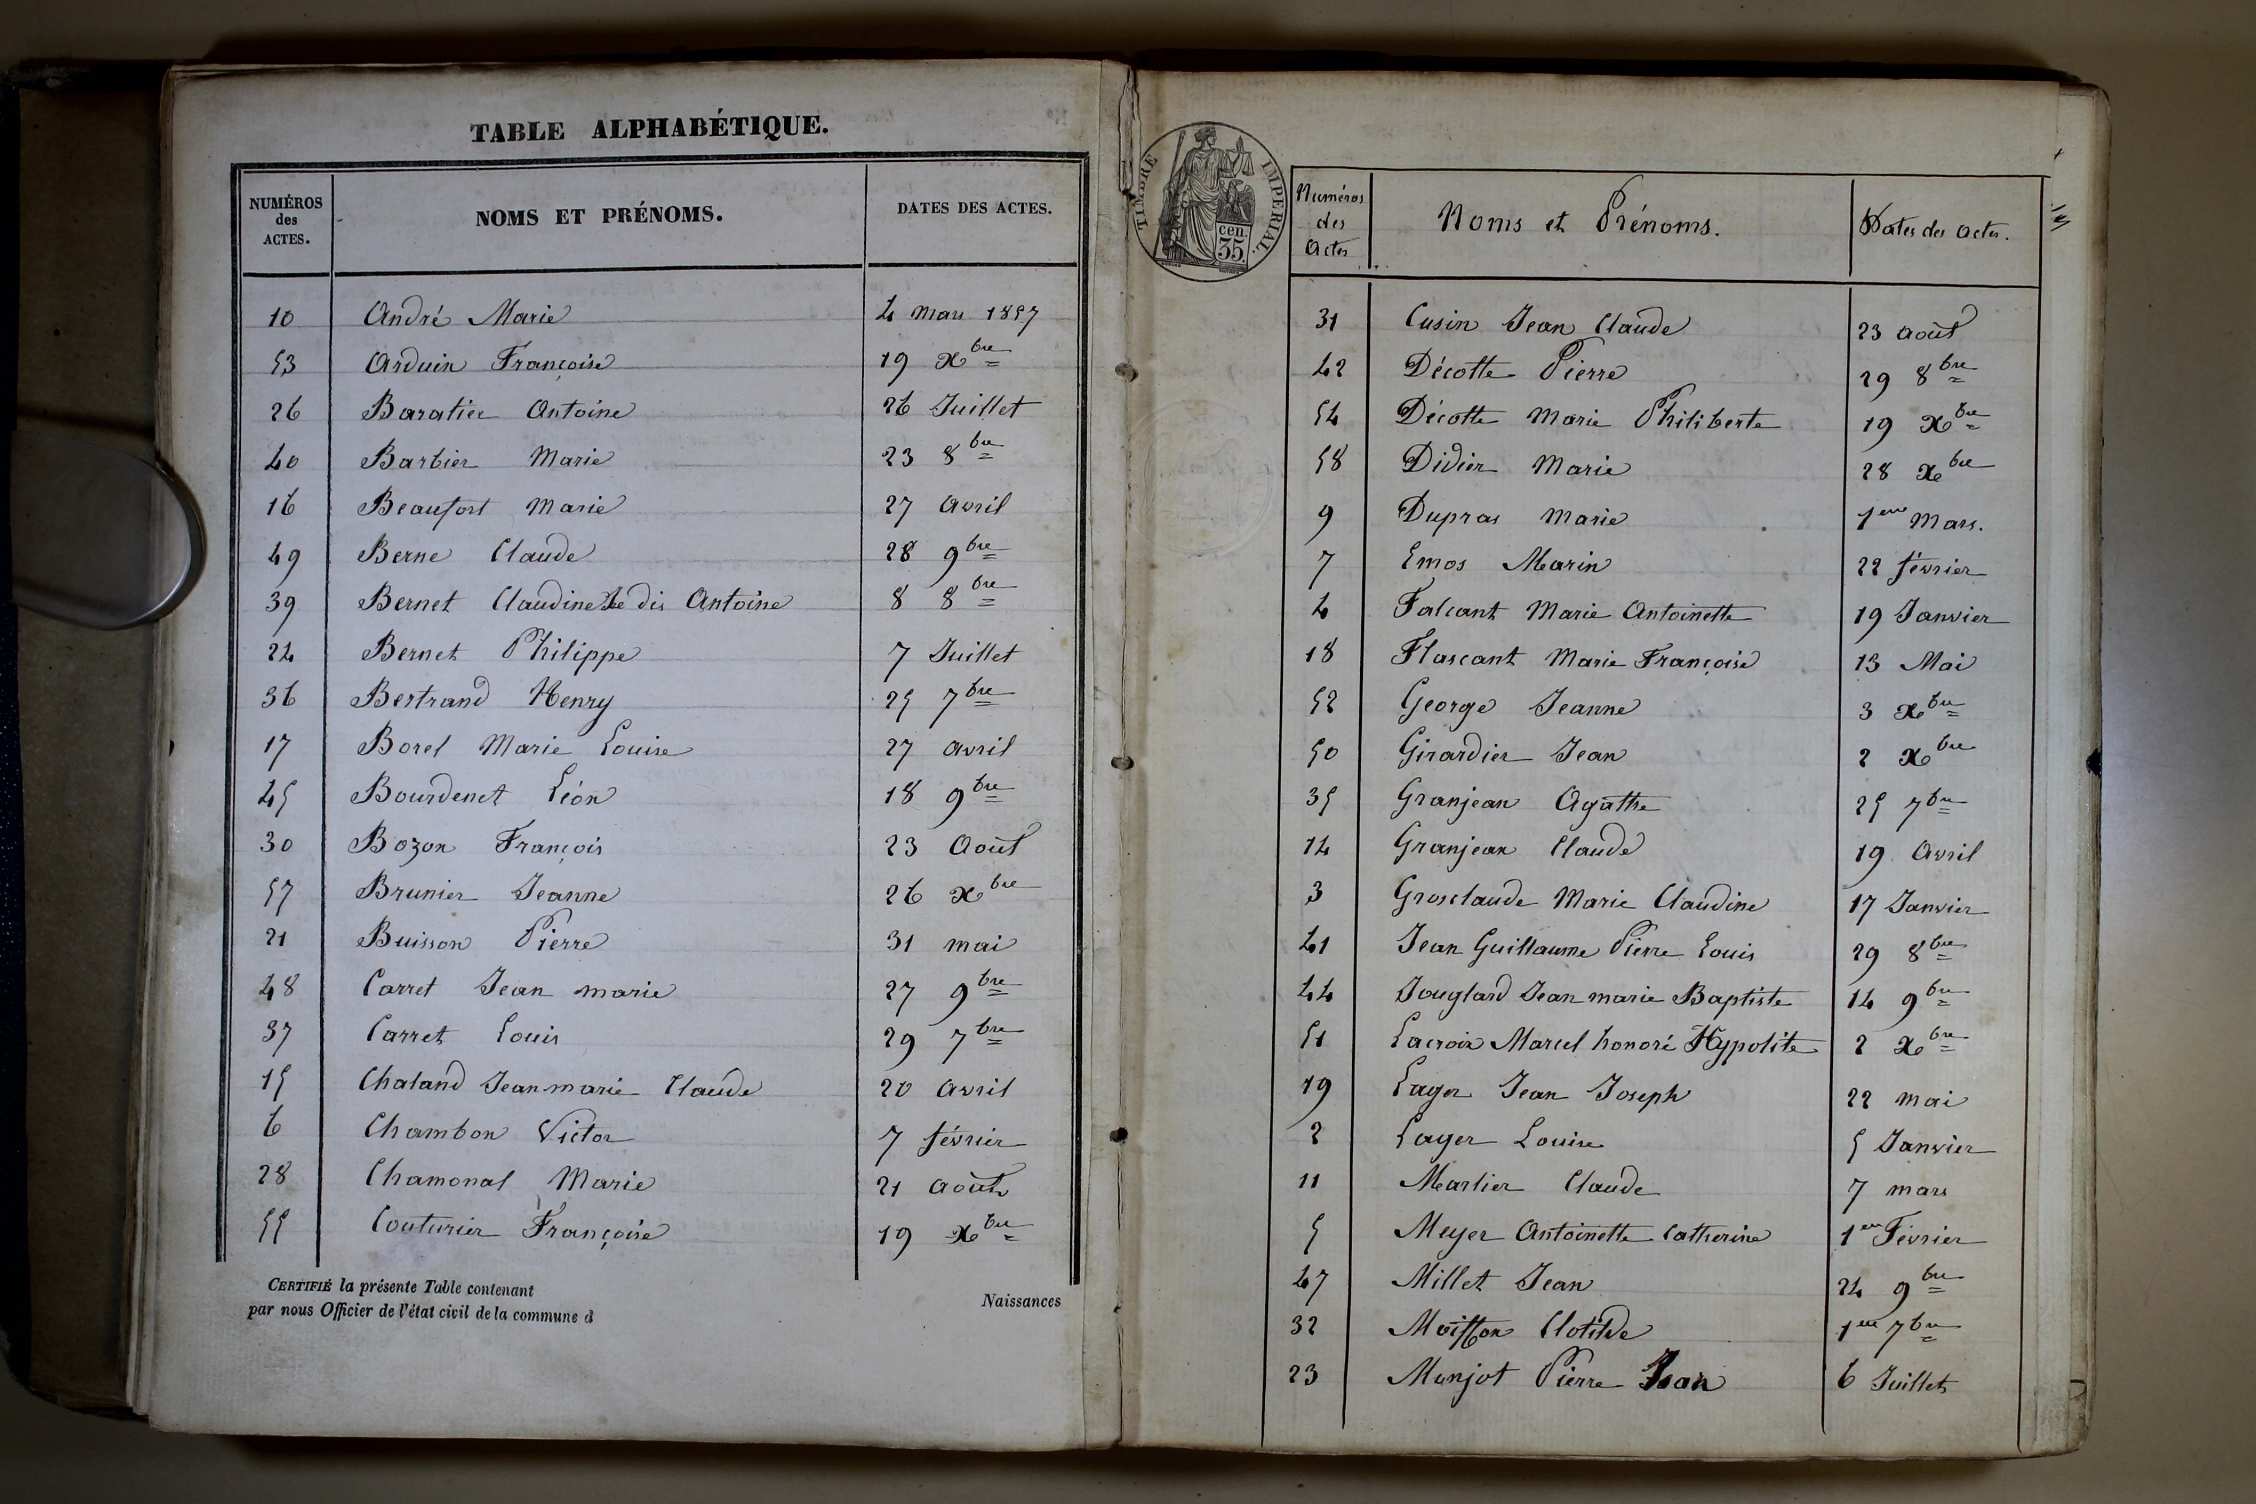 TABLE ALPHABÉTIQUE.
NUMÉROS des ACTES. NOMS ET PRÉNOMS. DATES DES ACTES.
10 André Marie 4 Mars 1857
53 Arduin Françoise 19 Xbre
26 Baratier Antoine 26 Juillet
40 Barbier Marie 23 8bre
16 Beaufort Marie 27 Avril
49 Berne Claude 28 9bre
39 Bernet Claudine Le dis Antoine 8 8bre
24 Bernet Philippe 7 Juillet
36 Bertrand Henry 25 7bre
17 Borel Marie Louise 27 avril
45 Bourdenet Léon 18 9bre
30 Bozon François 23 Août
57 Brunier Jeanne 26 Xbre
21 Buisson Pierre 31 mai
48 Carret Jean marie 27 9bre
37 Carret Louis 29 7bre
15 Chaland Jean marie Claude 20 Avril
6 Chambon Victor 7 février
28 Chamonal Marie 21 Août
55 Couturier Françoise 19 Xbre
CERTIFIÉ la présente Table contenant Naissances
par nous Officier de l'état civil de la commune d
TIMBRE IMPÉRIAL.
cen.
35.
Numéros des Actes Noms et Prénoms. Dates des actes.
31 Cusin Jean Claude 23 août
42 Décotte Pierre 29 8bre
54 Décotte Marie Philiberte 19 Xbre
58 Didier Marie 28 Xbre
9 Dupras Marie 1er Mars.
7 Emos Marin 22 février
4 Falcant Marie Antoinette 19 Janvier
18 Flascant Marie Françoise 13 Mai
52 George Jeanne 3 Xbre
50 Girardier Jean 2 Xbre
35 Granjean Agathe 25 7bre
14 Granjean Claude 19 Avril
3 Grosclaude Marie Claudine 17 Janvier
41 Jean Guillaume Pierre Louis 29 8bre
44 Jouglard Jean marie Baptiste 14 9bre
51 Lacroix Marcel honoré Hypolite 2 Xbre
19 Lager Jean Joseph 22 mai
2 Lager Louise 5 Janvier
11 Marlier Claude 7 mars
5 Meyer Antoinette Catherine 1er Février
47 Millet Jean 24 9bre
32 Moisson Clotilde 1er 7bre
23 Munjot Pierre Jean 6 Juillet